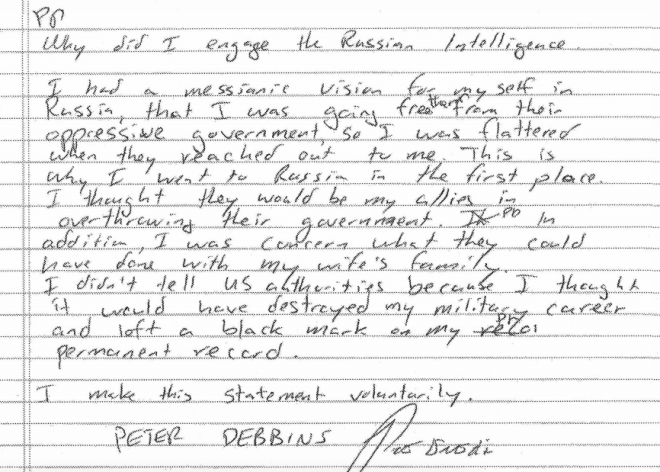 PD
Why did I engage the Russian Intelligence.
I had a messianic vision for my self in
Russia, that I was going free them from their
oppressive government, so I was flattered
when they reached out to me. This is
why I went to Russia in the first place.
I thought they would be my allies in
overthrowing their government. PD In
addition, I was concern what they could
have done with my wife's family.
I didn't tell US authorities because I thought
it would have destroyed my military career
and left a black mark on my PD
permanent record.
I make this statement voluntarily.
PETER DEBBINS